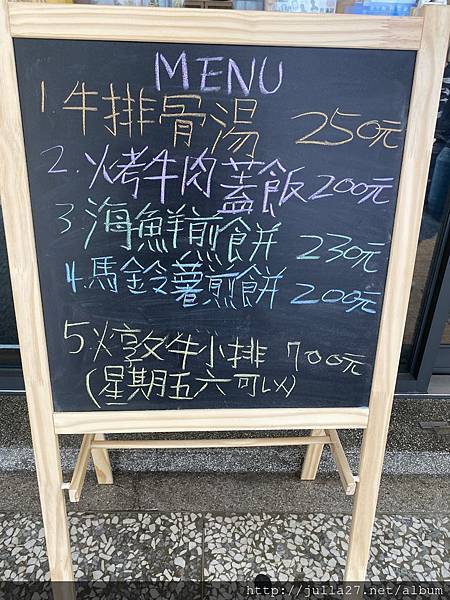 MENU
1.牛排骨湯 250元
2.烤牛肉蓋飯200元
3.海鮮煎餅 230元
4.馬鈴薯煎餅 200元
5.燉牛小排 700元
(星期五六可以)
http://julla27.pixnet.net/album